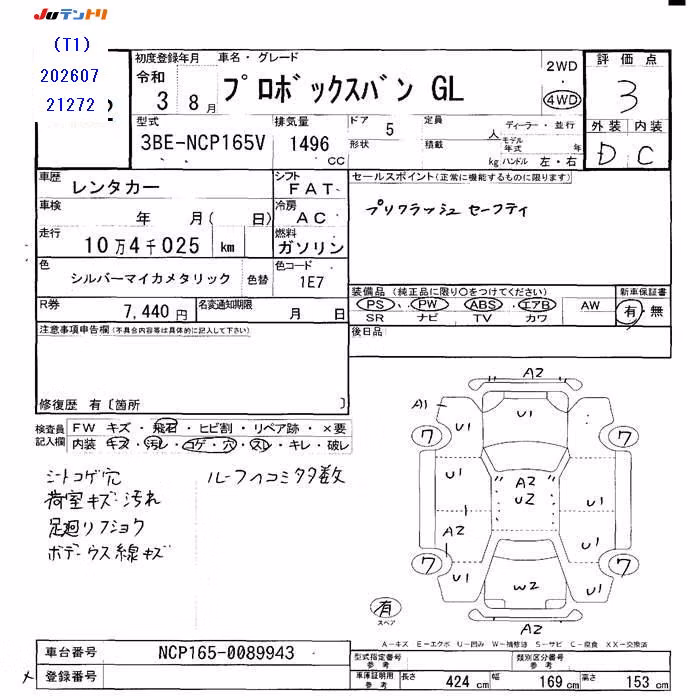 Juテントリ
(T1)
202607
21272
初度登録年月
令和
3 8月
車名・グレード
プロボックスバン GL
2WD
4WD
評価点
3
外装 内装
D C
型式
3BE-NCP165V
排気量
1496
CC
ドア 5
形状
定員 人
積載 kg
ディーラー・並行
モデル年式 年
ハンドル 左・右
車歴
レンタカー
シフト
FAT
車検
年 月( 日)
冷房
AC
走行
10万4千025 km
燃料
ガソリン
色
シルバーマイカメタリック
色替
色コード
1E7
R券
7,440円
名変通知期限
月 日
セールスポイント(正常に機能するものに限ります)
プリクラッシュセーフティ
装備品(純正品に限り○をつけてください)
PS PW ABS エアB AW
SR ナビ TV カワ
新車保証書
有・無
後日品
注意事項申告欄(不具合内容等は具体的に記入して下さい)
修復歴 有〔箇所 〕
検査員記入欄
FW キズ・飛石・ヒビ割・リペア跡・×要
内装 キズ・汚れ・コゲ・穴・スレ・キレ・破レ
シートコゲ穴
荷室キズ・汚れ
足廻リフショク
ボデーウス線キズ
ルーフヘコミタタ数
A2
A1
U1
7
7
U1
U1
A2
U2
U1
A2
U1
U1
7
7
U1
W2
U1
A2
有
スペア
A-キズ E-エクボ U-凹み W-補修跡 S-サビ C-腐食 XX-交換済
車台番号
NCP165-0089943
登録番号
型式指定番号
参考
類別区分番号
参考
車庫証明用
参考
長さ 424 cm
幅 169 cm
高さ 153 cm